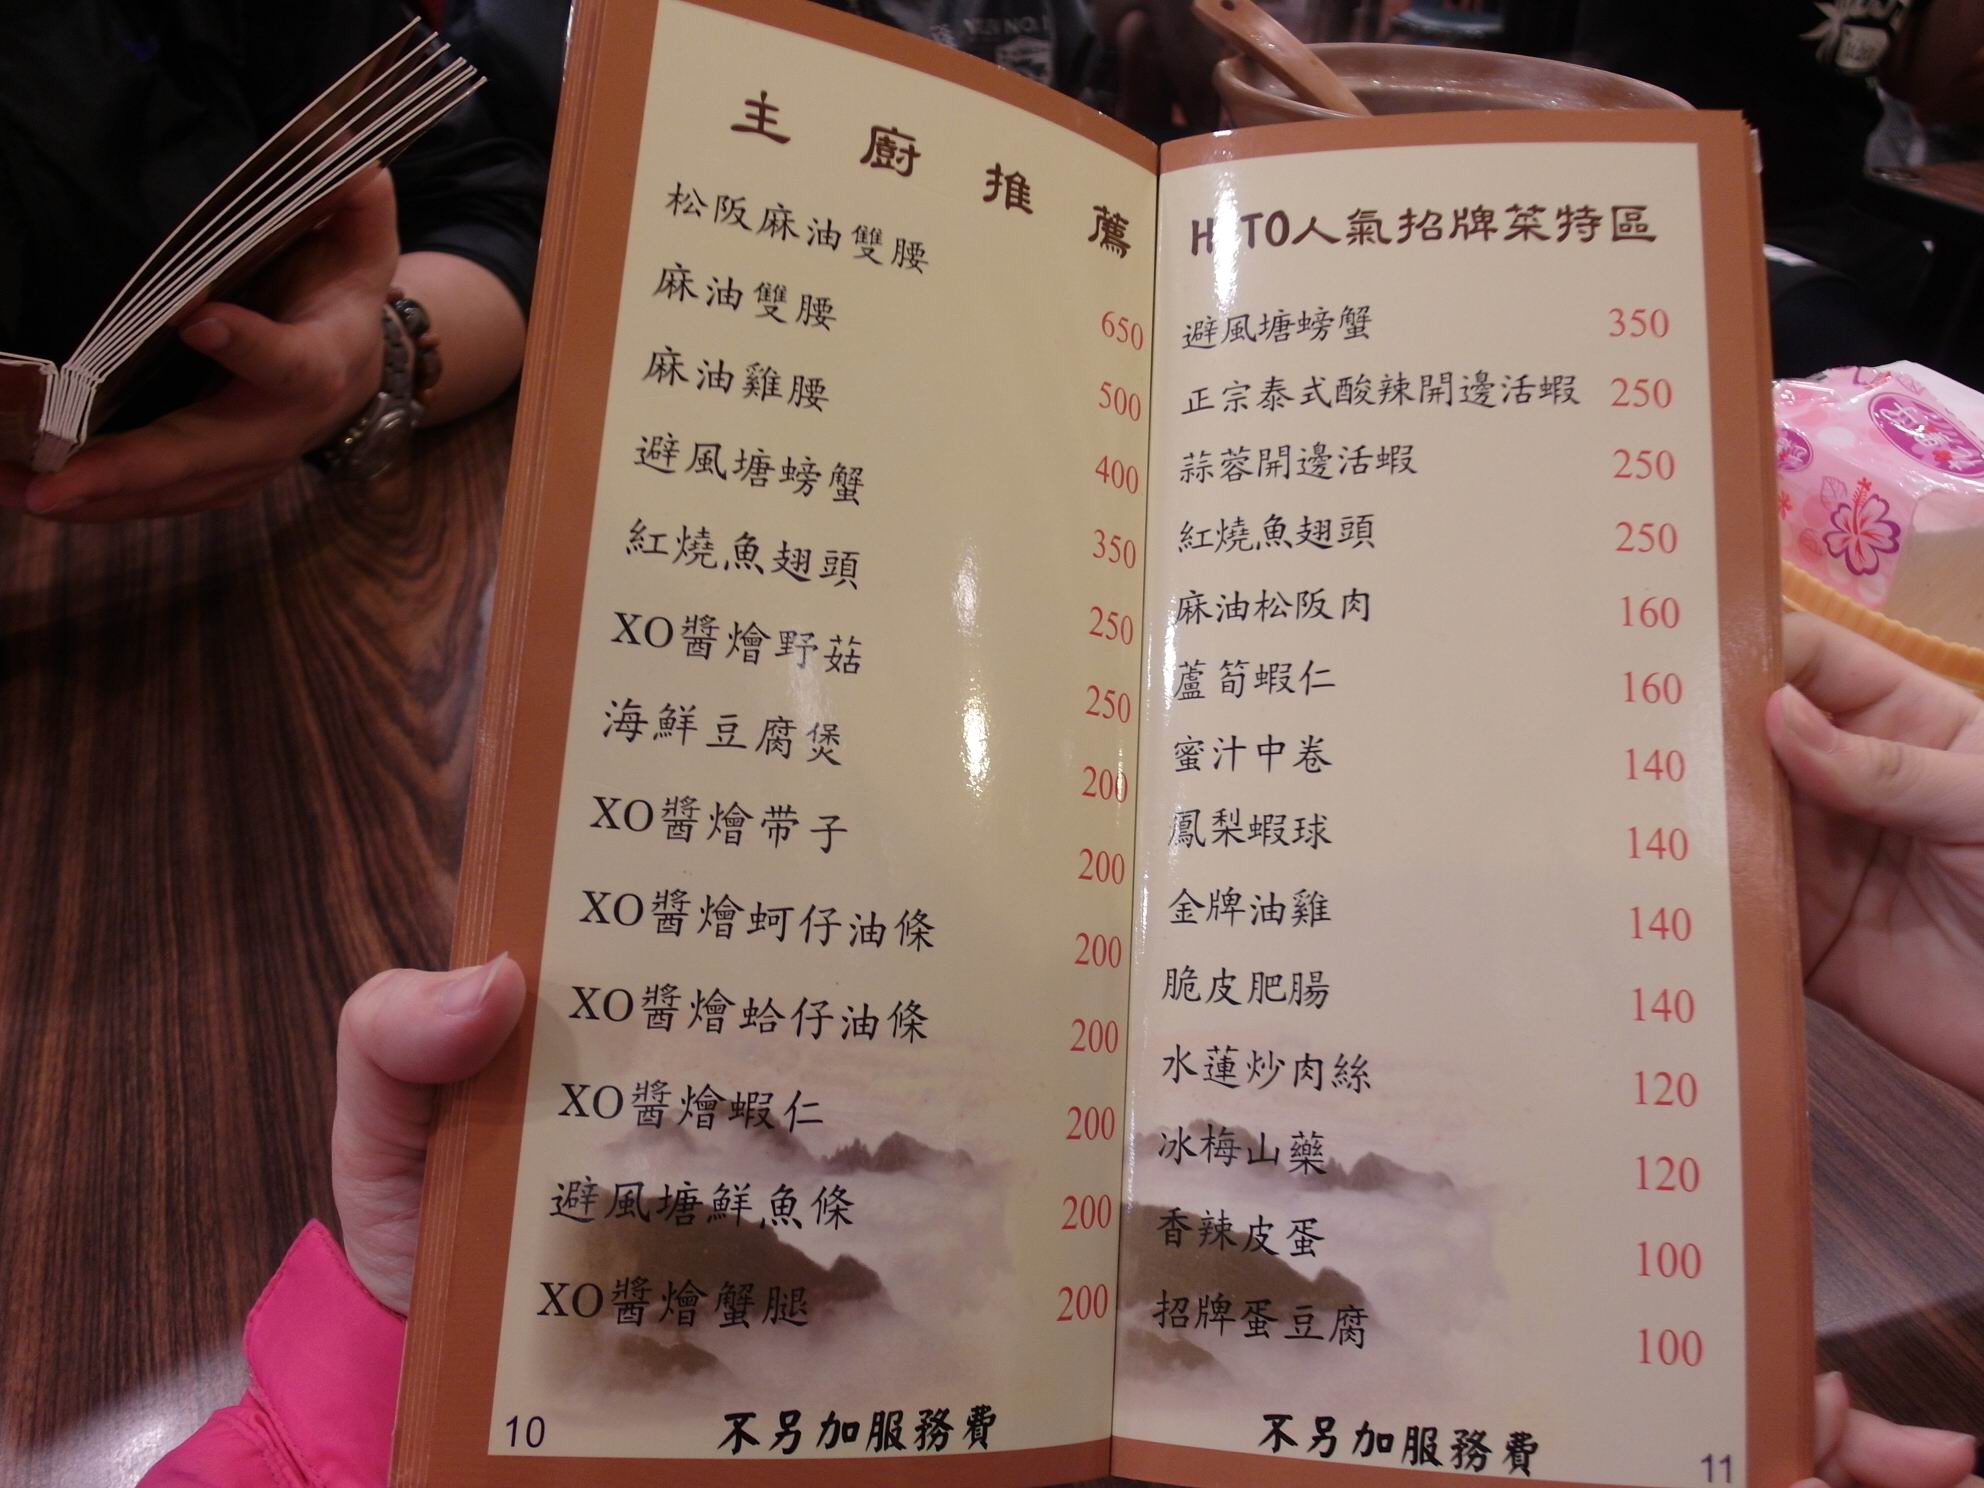 主廚推薦
松阪麻油雙腰 650
麻油雙腰 500
麻油雞腰 400
避風塘螃蟹 350
紅燒魚翅頭 250
XO醬燴野菇 250
海鮮豆腐煲 200
XO醬燴帶子 200
XO醬燴蚵仔油條 200
XO醬燴蛤仔油條 200
XO醬燴蝦仁 200
避風塘鮮魚條 200
XO醬燴蟹腿 200
10 不另加服務費
HITO人氣招牌菜特區
避風塘螃蟹 350
正宗泰式酸辣開邊活蝦 250
蒜蓉開邊活蝦 250
紅燒魚翅頭 250
麻油松阪肉 160
蘆筍蝦仁 160
蜜汁中卷 140
鳳梨蝦球 140
金牌油雞 140
脆皮肥腸 140
水蓮炒肉絲 120
冰梅山藥 120
香辣皮蛋 100
招牌蛋豆腐 100
不另加服務費 11